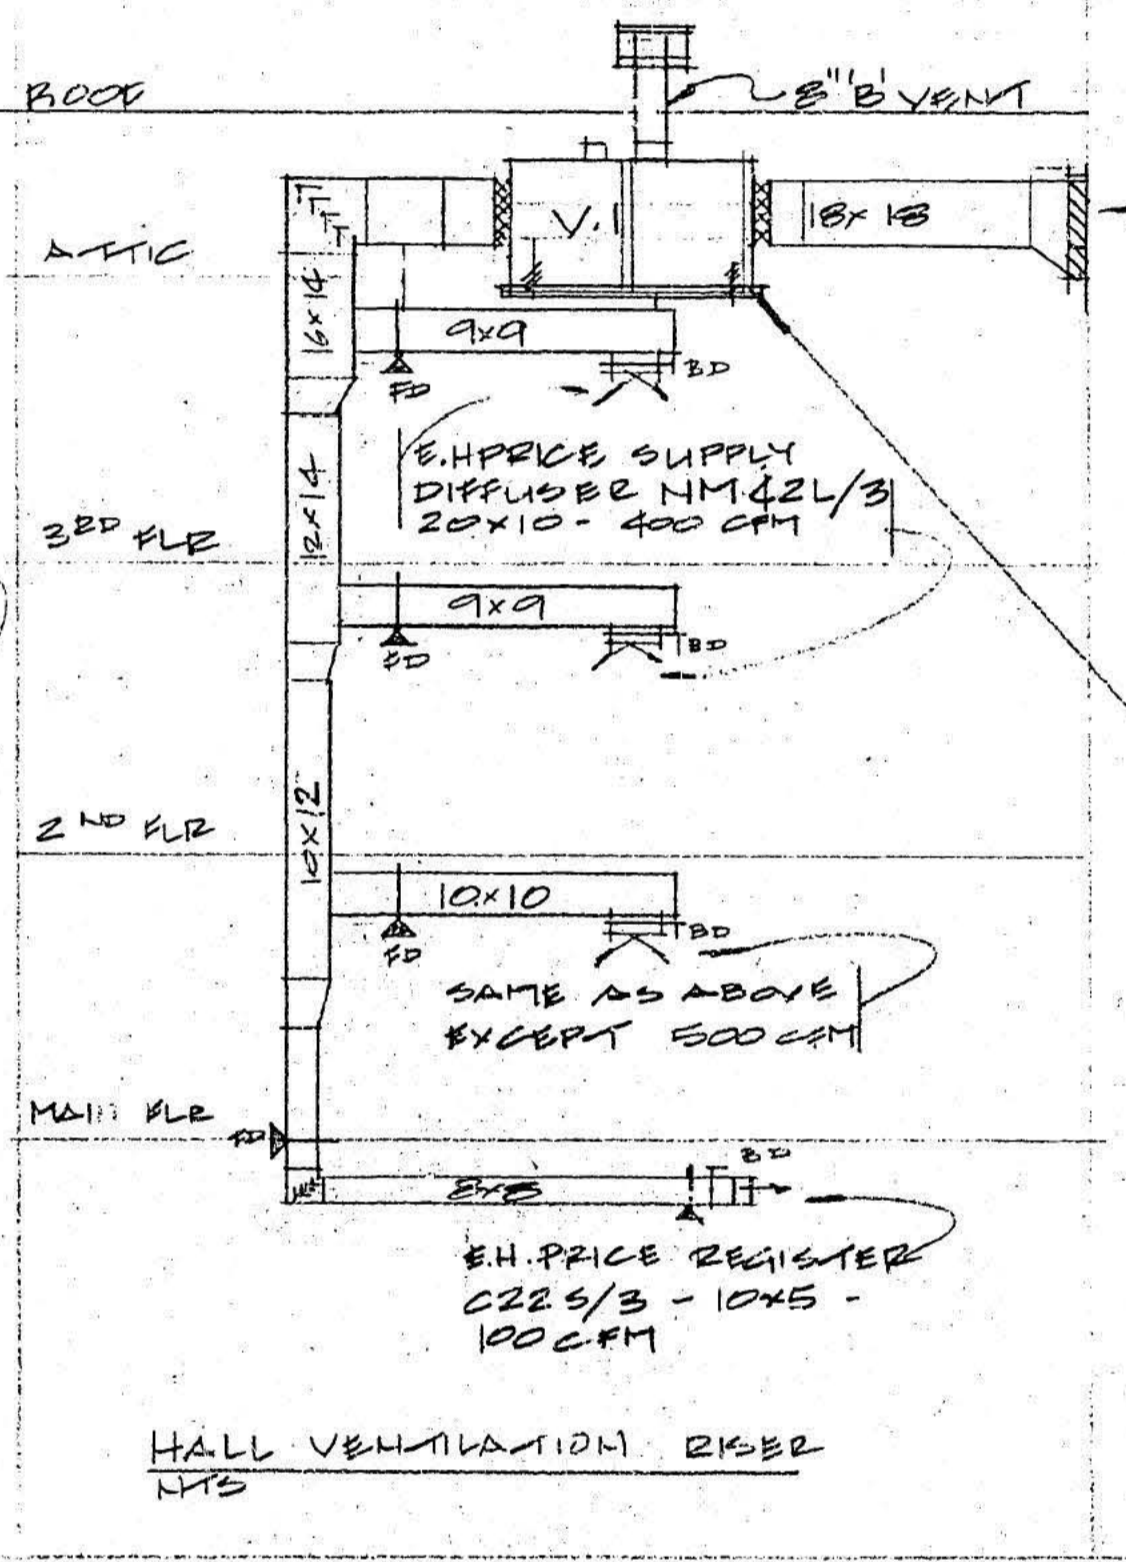 ROOF
8" 'B' VENT
V.1
18x18
ATTIC
16x14
9x9
FD
BD
E.H PRICE SUPPLY
DIFFUSER NM42L/3
20x10 - 400 CFM
12x14
3RD FLR
9x9
FD
BD
10x12
2ND FLR
10x10
FD
BD
SAME AS ABOVE
EXCEPT 500 CFM
MAIN FLR
FD
BD
8x8
E.H. PRICE REGISTER
C22S/3 - 10x5 -
100 CFM
HALL VENTILATION RISER
NTS